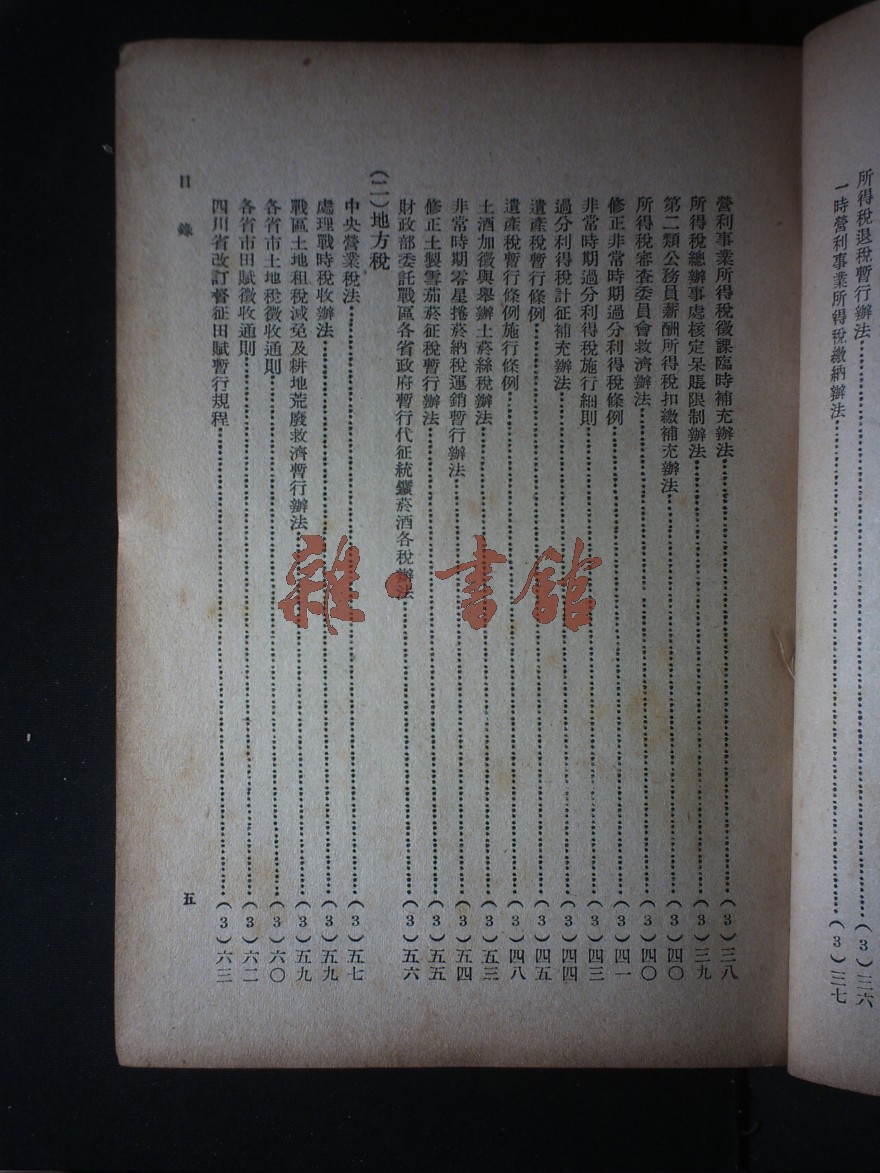 所得稅退稅暫行辦法……(3)三六
一時營利事業所得稅繳納辦法……(3)三七
營利事業所得稅徵課臨時補充辦法……(3)三八
所得稅總辦事處核定呆賬限制辦法……(3)三九
第二類公務員薪酬所得稅扣繳補充辦法……(3)四〇
所得稅審查委員會救濟辦法……(3)四〇
修正非常時期過分利得稅條例……(3)四一
非常時期過分利得稅施行細則……(3)四三
過分利得稅計征補充辦法……(3)四四
遺產稅暫行條例……(3)四五
遺產稅暫行條例施行條例……(3)四八
土酒加徵與舉辦土菸絲稅辦法……(3)五三
非常時期零星捲菸納稅運銷暫行辦法……(3)五四
修正土製雪茄菸征稅暫行辦法……(3)五五
財政部委託戰區各省政府暫行代征統鑛菸酒各稅辦法……(3)五六
(二)地方稅
中央營業稅法……(3)五七
處理戰時稅收辦法……(3)五九
戰區土地租稅減免及耕地荒廢救濟暫行辦法……(3)五九
各省市土地稅徵收通則……(3)六〇
各省市田賦徵收通則……(3)六二
四川省改訂督征田賦暫行規程……(3)六三
目錄
五
雜·書館